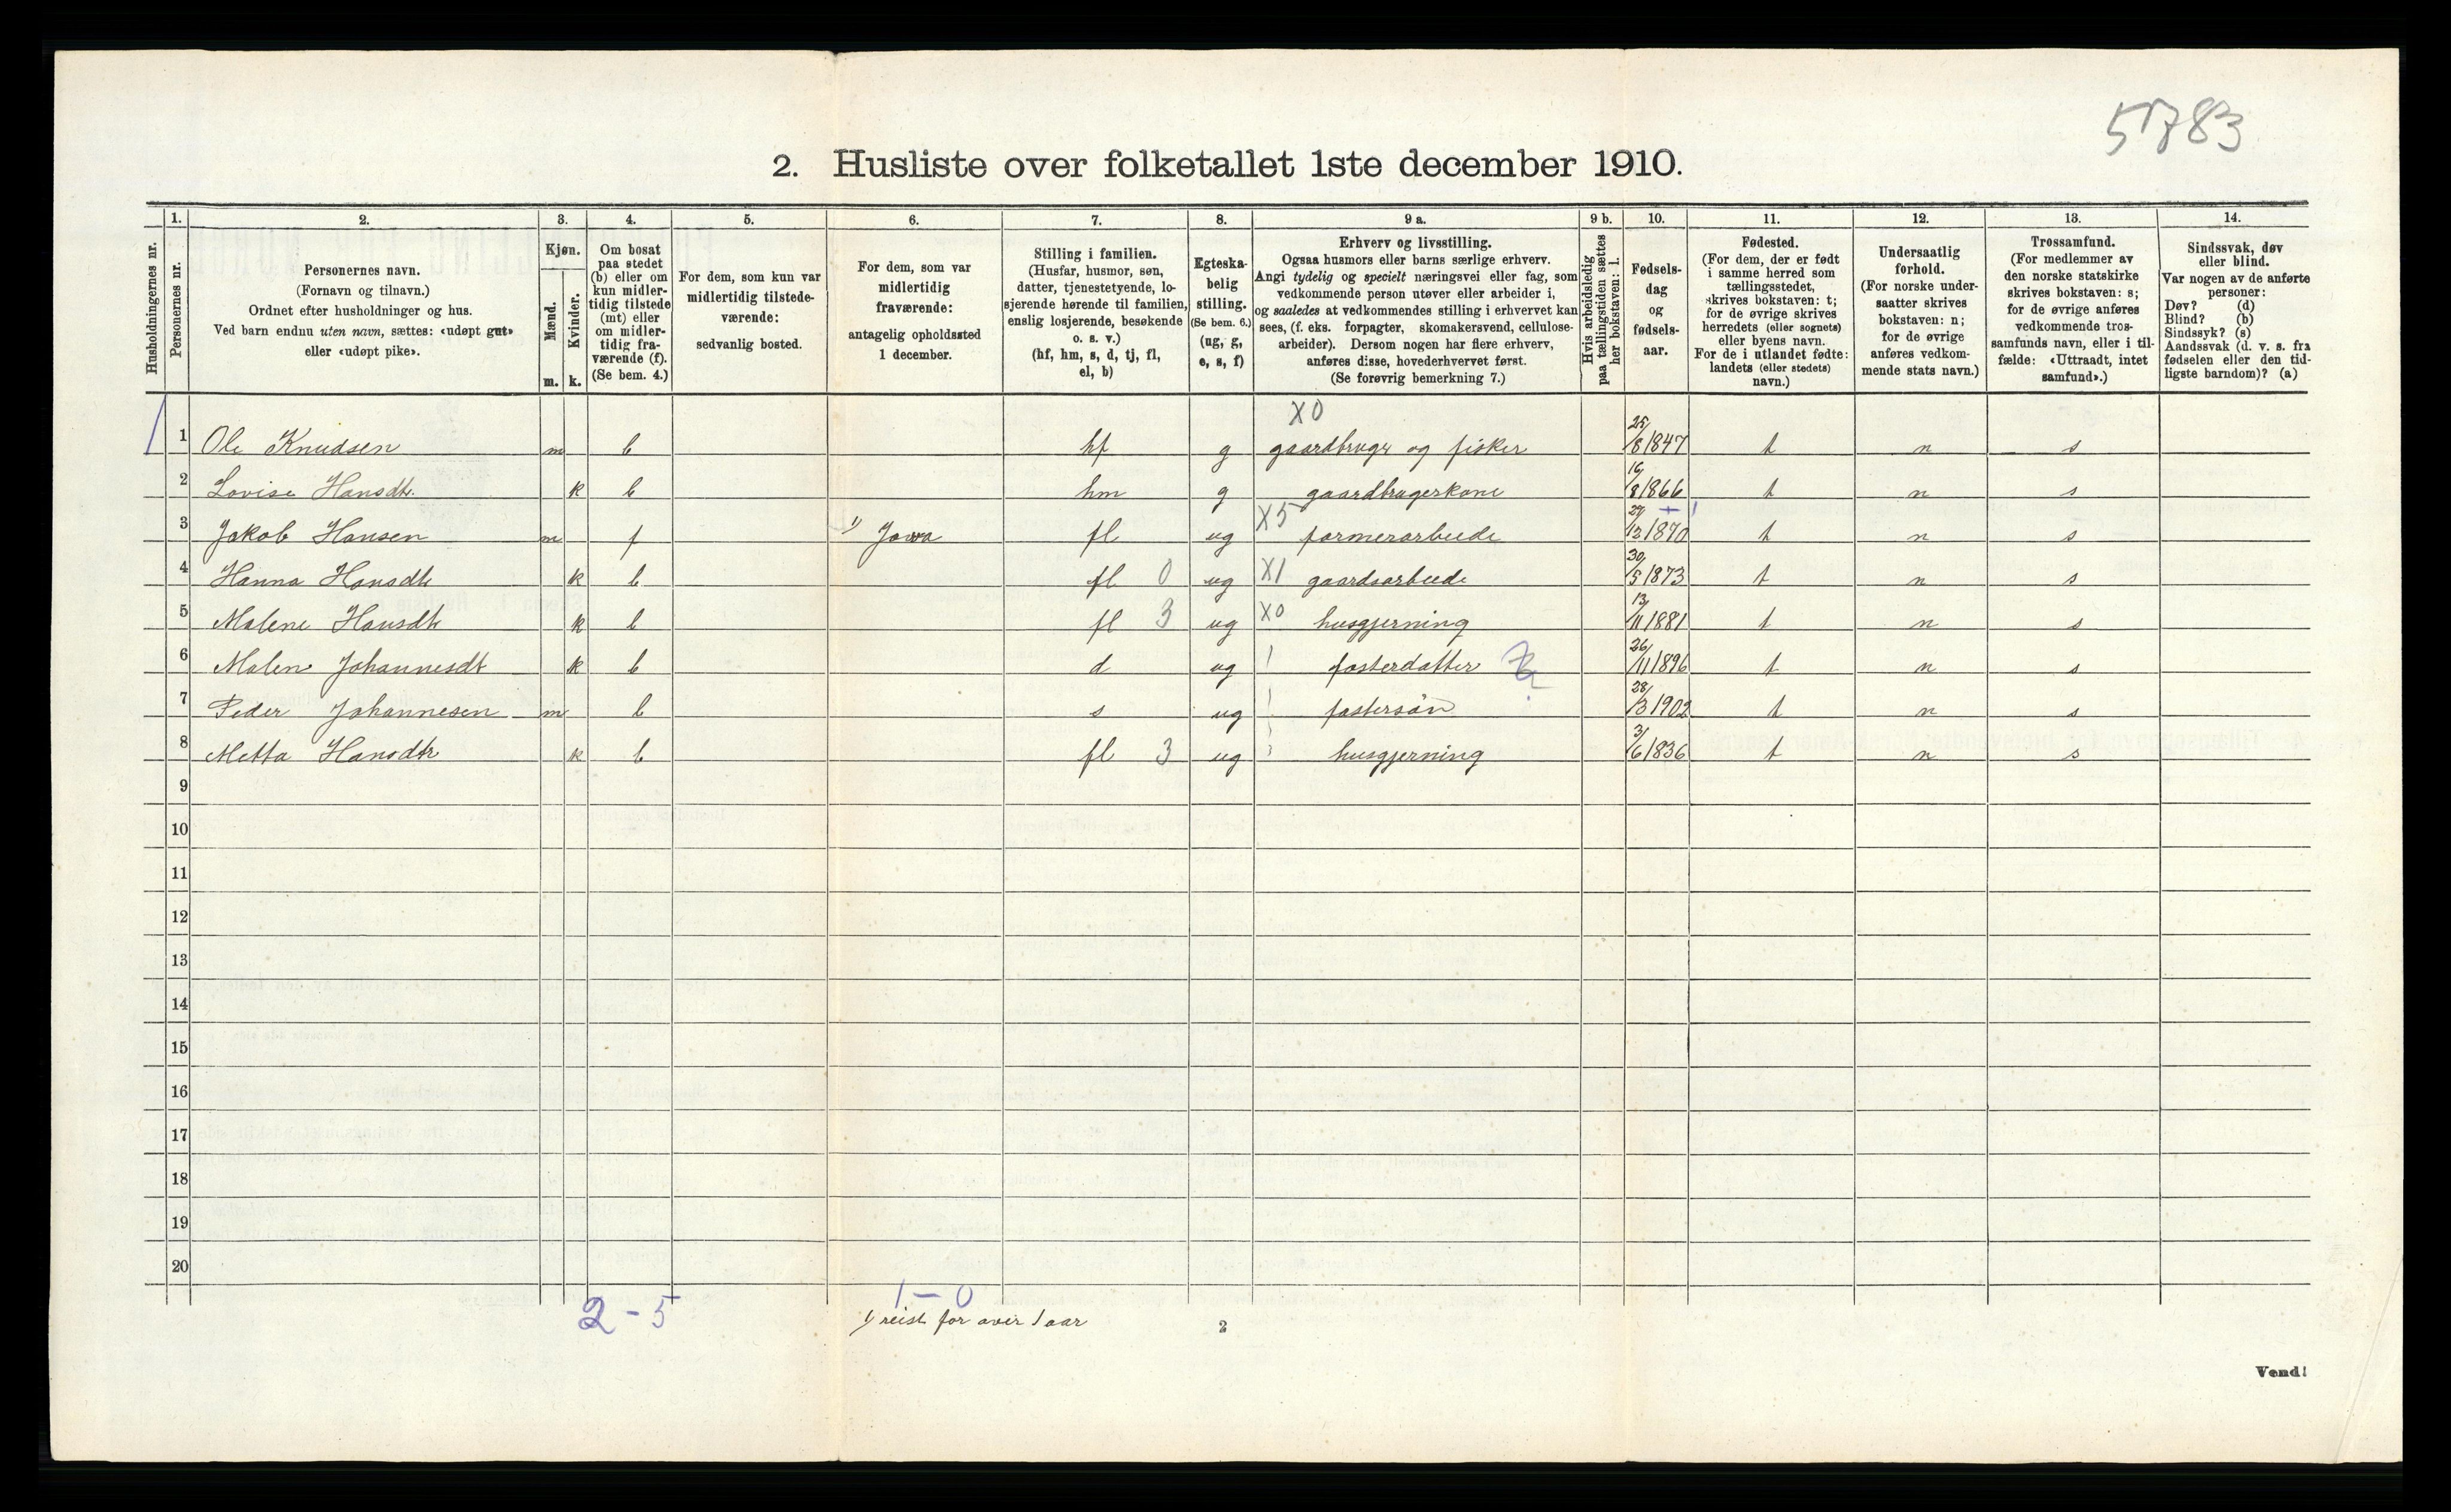 5783
2. Husliste over folketallet 1ste december 1910.
Husholdningernes nr.
1. Personernes nr.
2. Personernes navn.
(Fornavn og tilnavn.)
Ordnet efter husholdninger og hus.
Ved barn endnu uten navn, sættes: «udøpt gut»
eller «udøpt pike».
3. Kjøn.
Mænd. m.
Kvinder. k.
4. Om bosat
paa stedet
(b) eller om
kun midler-
tidig tilstede
(mt) eller
om midler-
tidig fra-
værende (f).
(Se bem. 4.)
5. For dem, som kun var
midlertidig tilstede-
værende:
sedvanlig bosted.
6. For dem, som var
midlertidig
fraværende:
antagelig opholdssted
1 december.
7. Stilling i familien.
(Husfar, husmor, søn,
datter, tjenestetyende, lo-
sjerende hørende til familien,
enslig losjerende, besøkende
o. s. v.)
(hf, hm, s, d, tj, fl,
el, b)
8. Egteska-
belig
stilling.
(Se bem. 6.)
(ug, g,
e, s, f)
9 a. Erhverv og livsstilling.
Ogsaa husmors eller barns særlige erhverv.
Angi tydelig og specielt næringsvei eller fag, som
vedkommende person utøver eller arbeider i,
og saaledes at vedkommendes stilling i erhvervet kan
sees, (f. eks. forpagter, skomakersvend, cellulose-
arbeider). Dersom nogen har flere erhverv,
anføres disse, hovederhvervet først.
(Se forøvrig bemerkning 7.)
9 b. Hvis arbeidsledig
paa tællingstiden sættes
her bokstaven: l.
10. Fødsels-
dag
og
fødsels-
aar.
11. Fødested.
(For dem, der er født
i samme herred som
tællingsstedet,
skrives bokstaven: t;
for de øvrige skrives
herredets (eller sognets)
eller byens navn.
For de i utlandet fødte:
landets (eller stedets)
navn.)
12. Undersaatlig
forhold.
(For norske under-
saatter skrives
bokstaven: n;
for de øvrige
anføres vedkom-
mende stats navn.)
13. Trossamfund.
(For medlemmer av
den norske statskirke
skrives bokstaven: s;
for de øvrige anføres
vedkommende tros-
samfunds navn, eller i til-
fælde: «Uttraadt, intet
samfund».)
14. Sindssvak, døv
eller blind.
Var nogen av de anførte
personer:
Døv? (d)
Blind? (b)
Sindssyk? (s)
Aandssvak (d. v. s. fra
fødselen eller den tid-
ligste barndom)? (a)
X0
1 Ole Knudsen m b hf g gaardbruger og fisker 25/8 1847 t n s
2 Lovise Hansdtr. k b hm g gaardbrugerkone 16/8 1866 t n s
3 Jakob Hansen m f 1) Jowa fl ug X5 farmerarbeide 27/12 1870 t n s
4 Hanna Hansdtr k b fl 0 ug X1 gaardsarbeide 30/5 1873 t n s
5 Malene Hansdtr k b fl 3 ug X0 husgjerning 13/11 1881 t n s
6 Malene Johannesdt k b d ug fosterdatter 26/11 1896 t n s
7 Peder Johannesen m b s ug fostersøn 28/3 1902 t n s
8 Metta Hansdtr k b fl 3 ug husgjerning 3/6 1836 t n s
9
10
11
12
13
14
15
16
17
18
19
20
2 - 5
1 - 0
1) reist for over 1 aar
2
Vend!